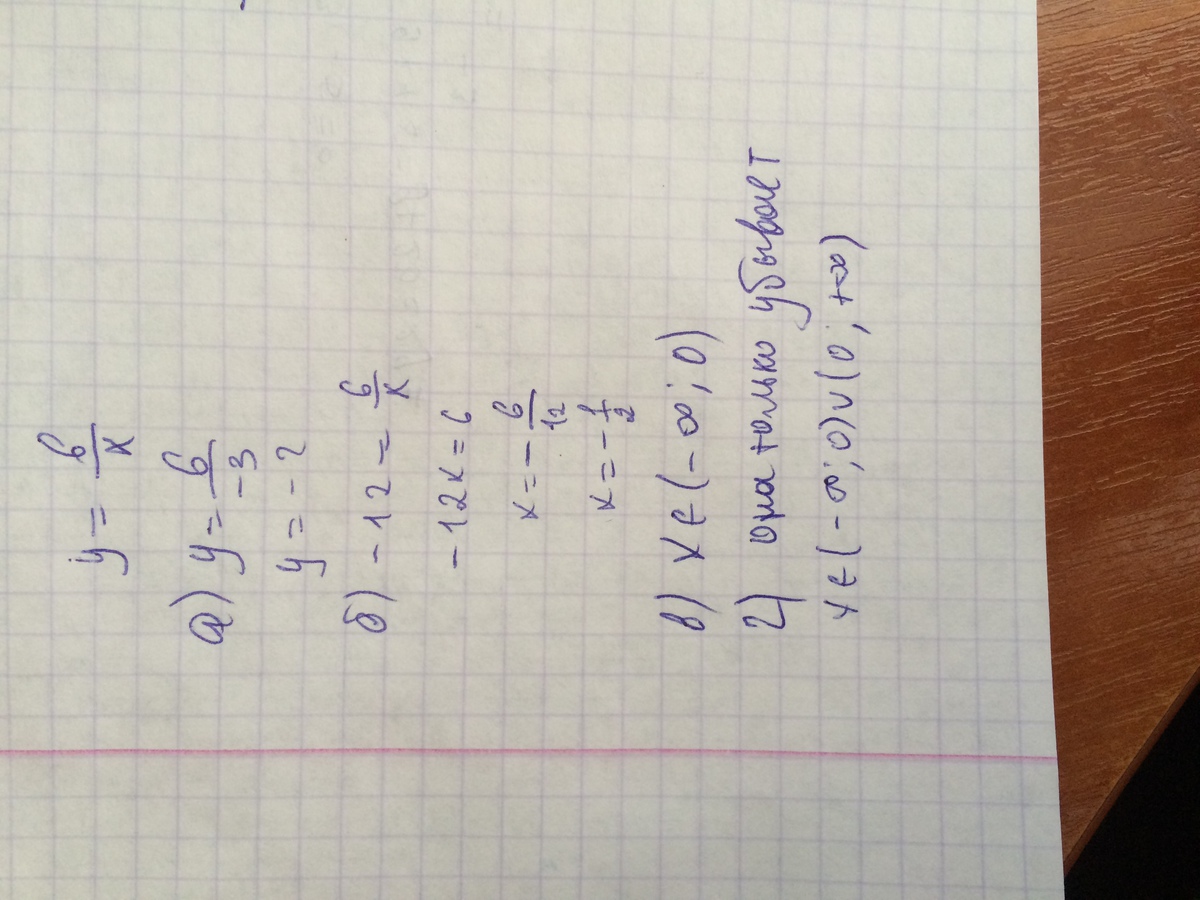 y = 6/x
а) y = 6/-3
y = -2
б) -12 = 6/x
-12x = 6
x = - 6/12
x = - 1/2
в) x ∈ (-∞; 0)
г) она только убывает
x ∈ (-∞; 0) ∪ (0; +∞)